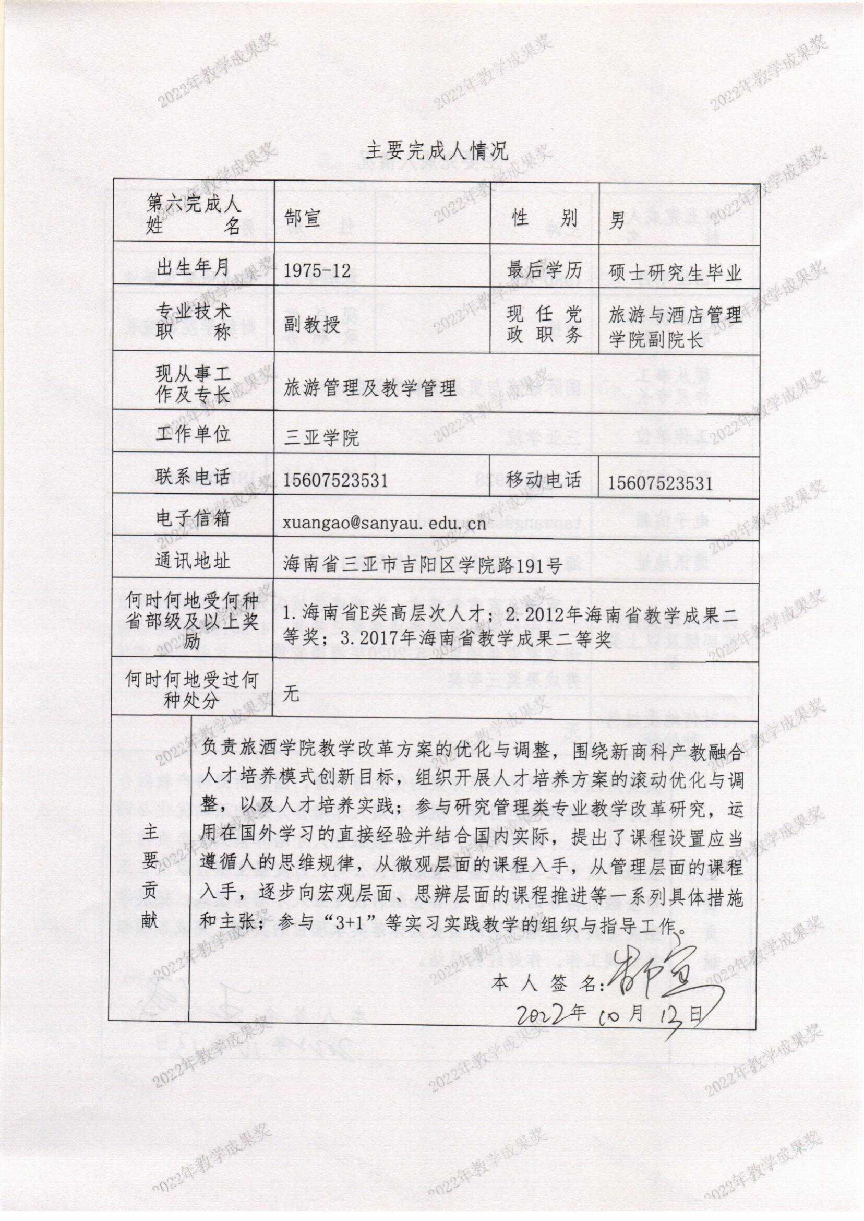 主要完成人情况
第六完成人
姓 名
郜宣
性 别
男
出生年月
1975-12
最后学历
硕士研究生毕业
专业技术
职 称
副教授
现 任 党
政 职 务
旅游与酒店管理
学院副院长
现从事工
作及专长
旅游管理及教学管理
工作单位
三亚学院
联系电话
15607523531
移动电话
15607523531
电子信箱
xuangao@sanyau.edu.cn
通讯地址
海南省三亚市吉阳区学院路191号
何时何地受何种
省部级及以上奖
励
1.海南省E类高层次人才；2.2012年海南省教学成果二
等奖；3.2017年海南省教学成果二等奖
何时何地受过何
种处分
无
主
要
贡
献
负责旅酒学院教学改革方案的优化与调整，围绕新商科产教融合
人才培养模式创新目标，组织开展人才培养方案的滚动优化与调
整，以及人才培养实践；参与研究管理类专业教学改革研究，运
用在国外学习的直接经验并结合国内实际，提出了课程设置应当
遵循人的思维规律，从微观层面的课程入手，从管理层面的课程
入手，逐步向宏观层面、思辨层面的课程推进等一系列具体措施
和主张；参与“3+1”等实习实践教学的组织与指导工作。
本 人 签 名：郜宣
2022年 10 月 13 日
2022年教学成果奖